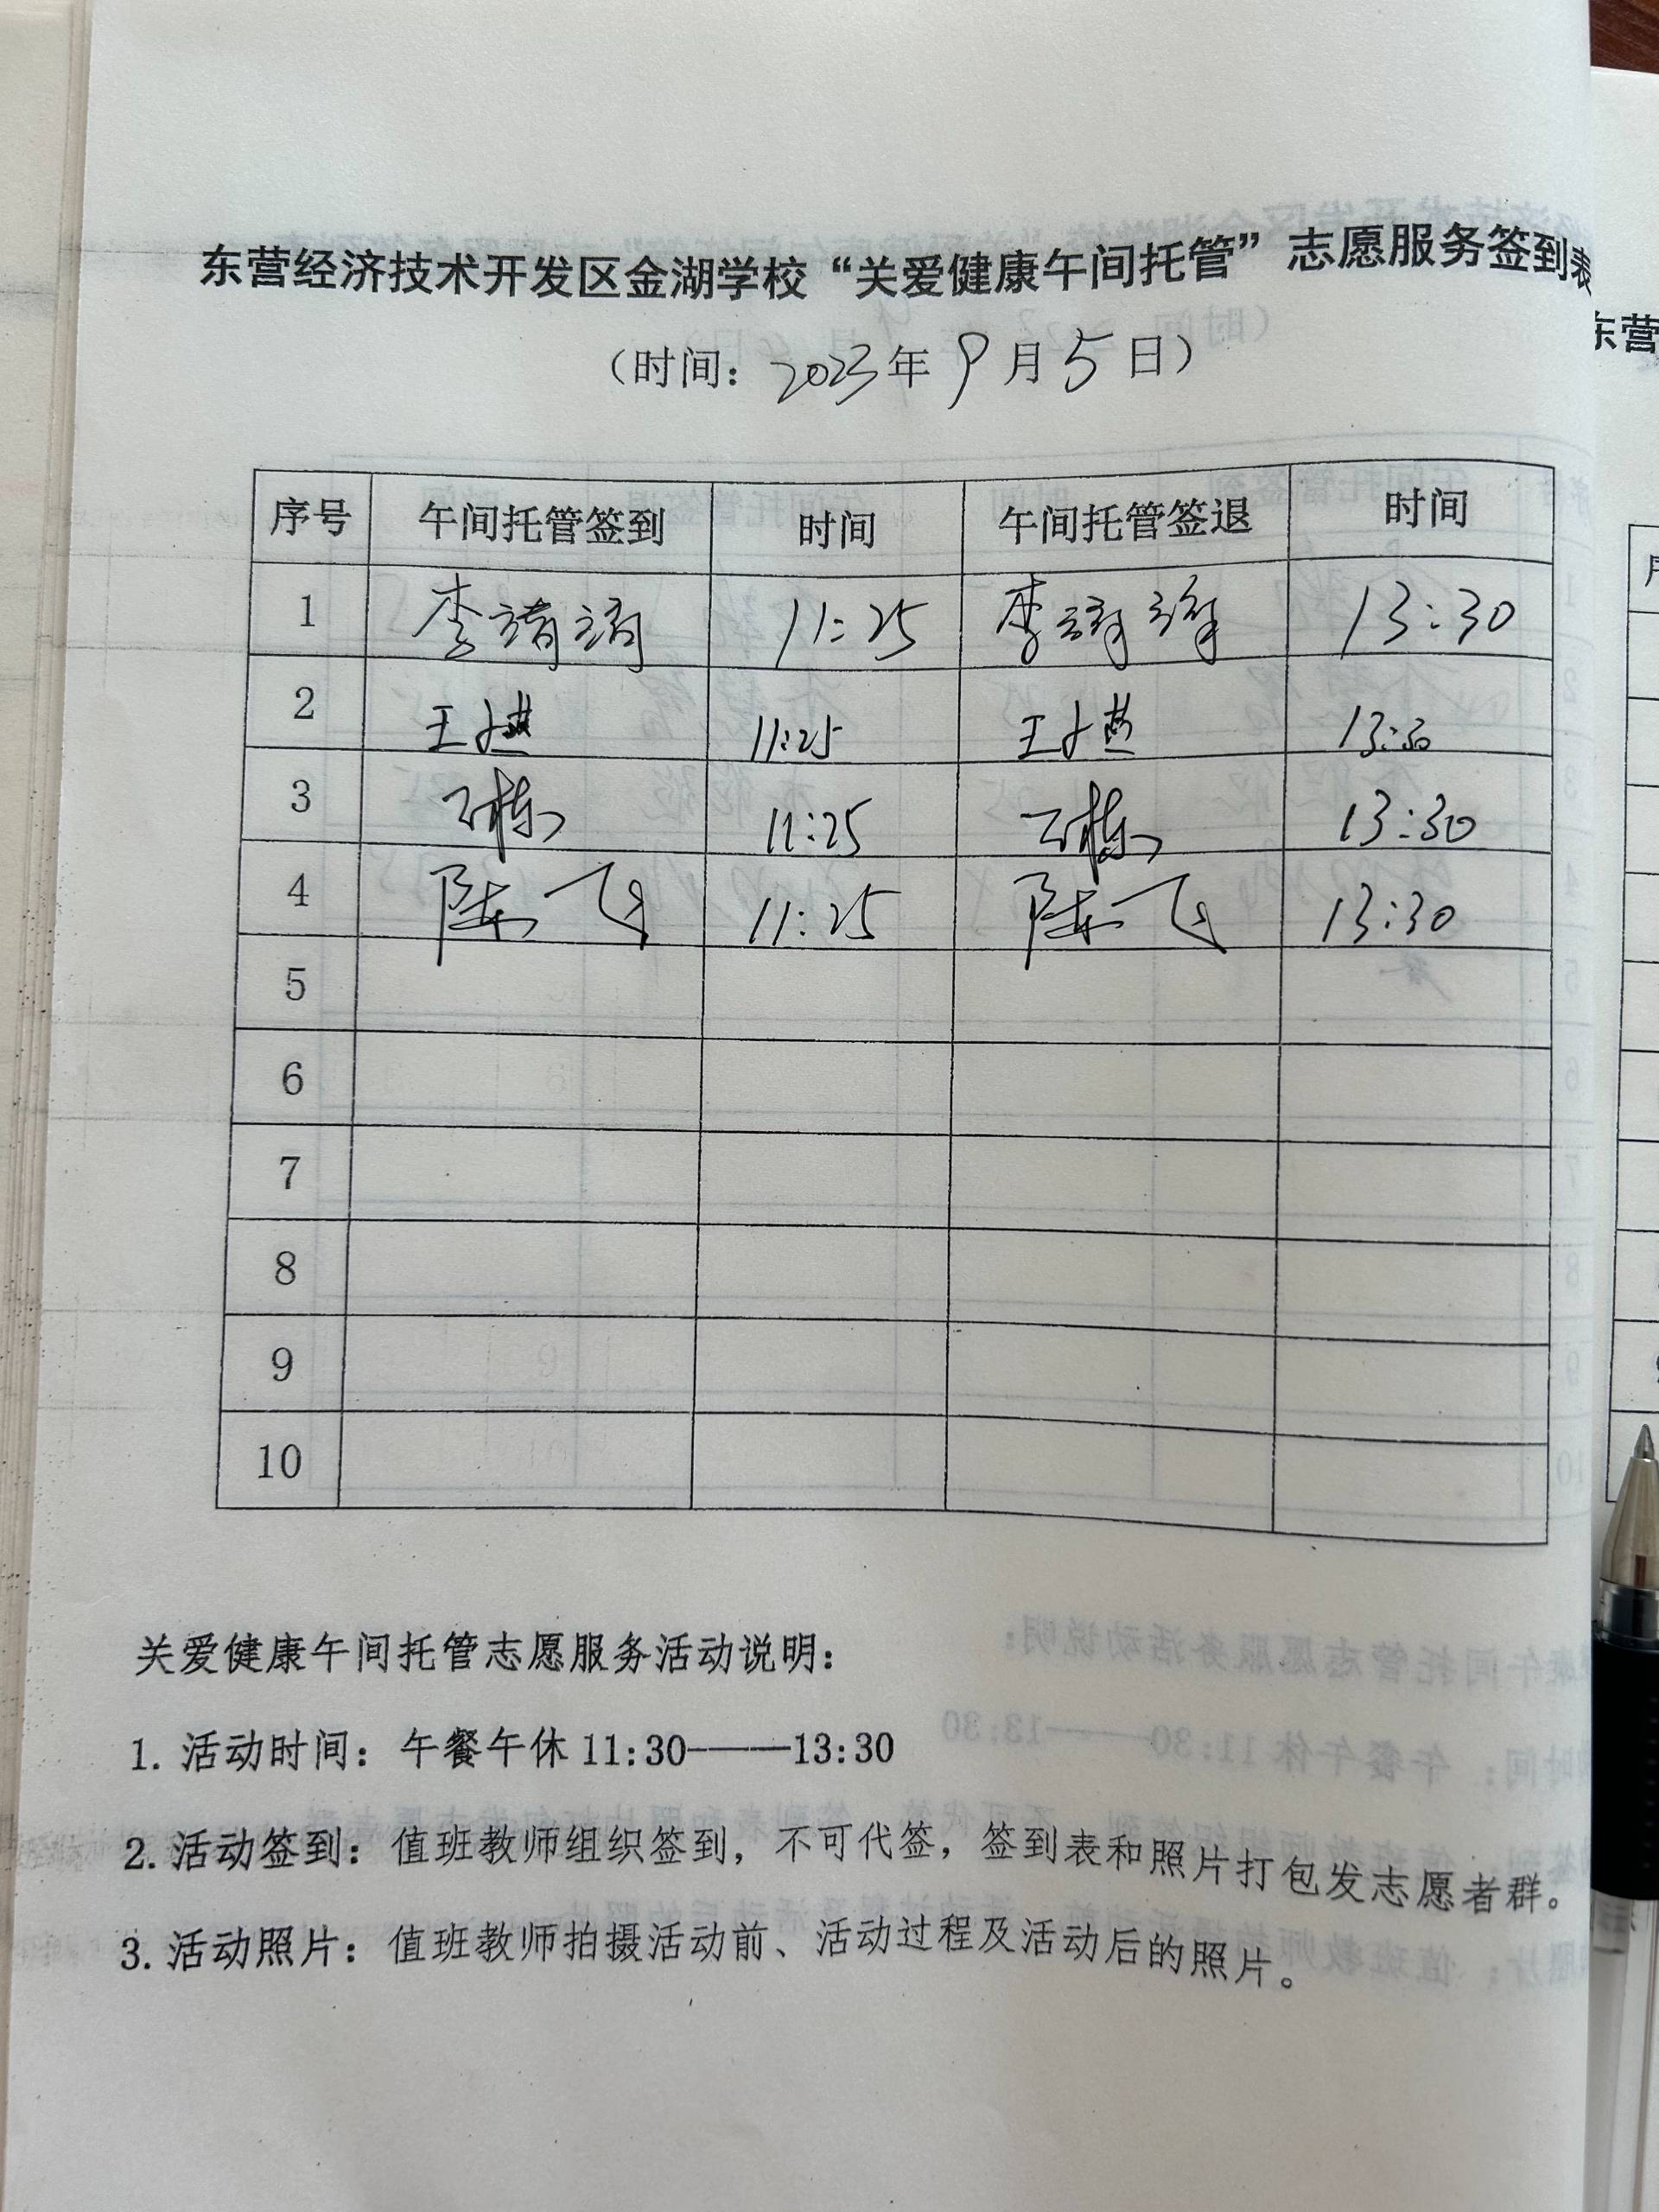 东营经济技术开发区金湖学校“关爱健康午间托管”志愿服务签到表
（时间：2023年9月5日）
序号 午间托管签到 时间 午间托管签退 时间
1 李 11:25 李 13:30
2 王 11:25 王 13:30
3 栋 11:25 栋 13:30
4 陈飞 11:25 陈飞 13:30
5
6
7
8
9
10
关爱健康午间托管志愿服务活动说明：
1. 活动时间：午餐午休 11:30———13:30
2. 活动签到：值班教师组织签到，不可代签，签到表和照片打包发志愿者群。
3. 活动照片：值班教师拍摄活动前、活动过程及活动后的照片。
东营